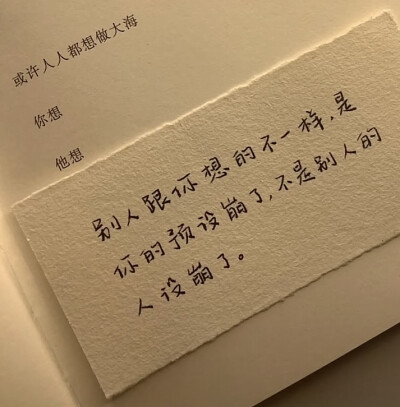 或许人人都想做大海
你想
他想
别人跟你想的不一样,是
你的预设崩了,不是别人的
人设崩了。